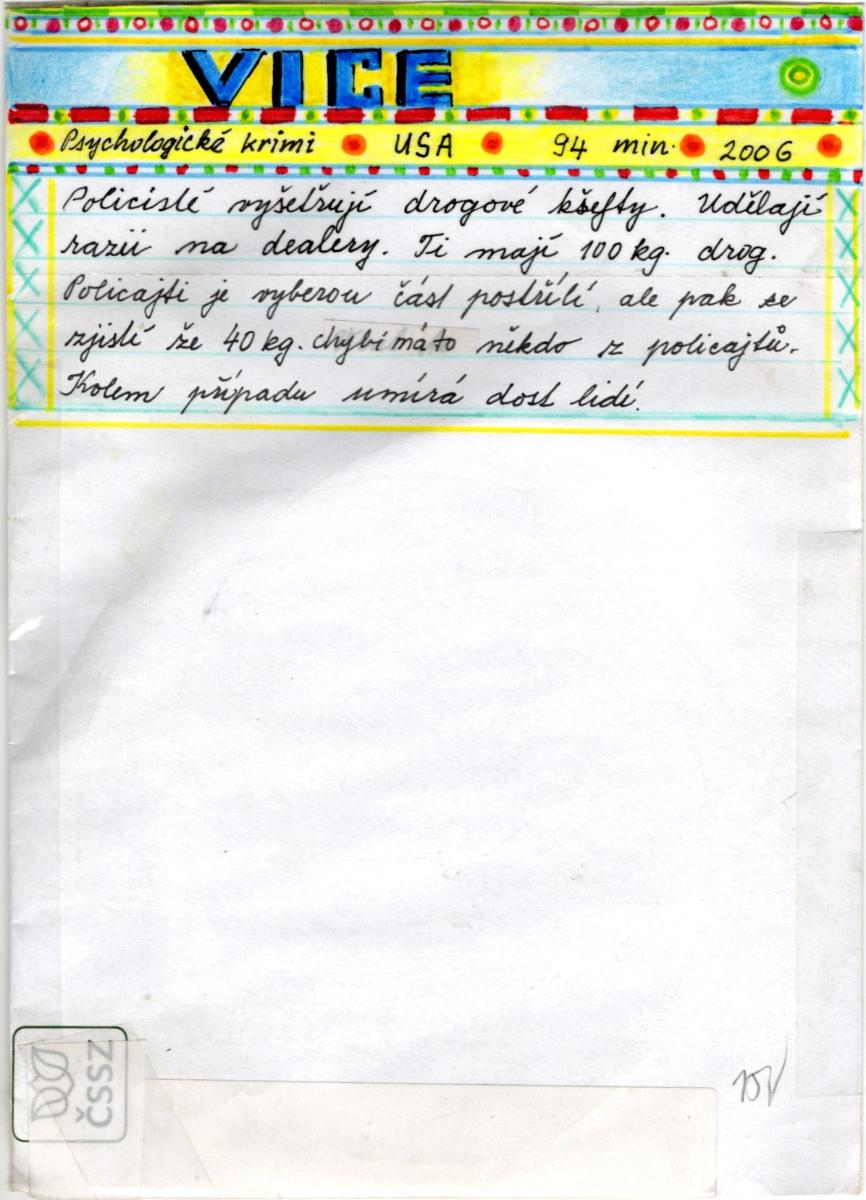 VICE
Psychologické krimi USA 94 min. 2006
Policisté vyšetřují drogové kšefty. Udělají
razii na dealery. Ti mají 100 kg. drog.
Policajti je vyberou část postřílí, ale pak se
zjistí že 40 kg. chybí má to někdo z policajtů.
Kolem případu umírá dost lidí.
ČSSZ